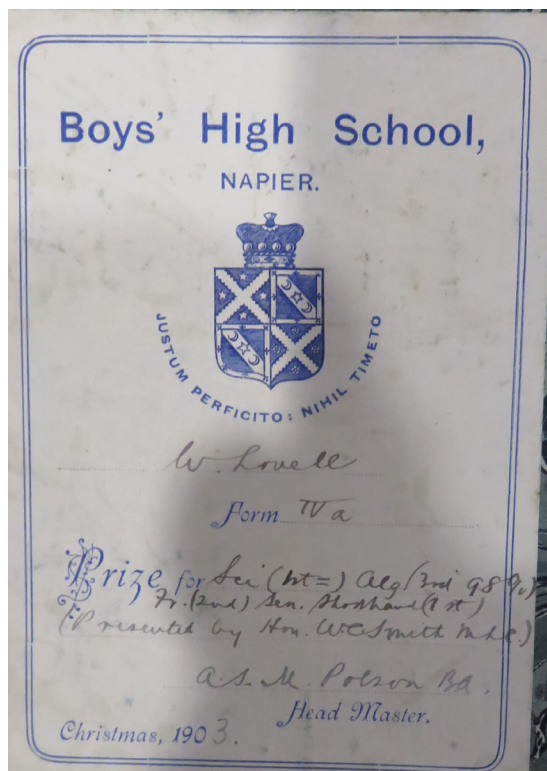 Boys' High School,
NAPIER.
JUSTUM PERFICITO: NIHIL TIMETO
W. Lovell
Form IVa
Prize for Sci (1st=) Alg (3rd 98%)
Fr. (2nd) Sen. Shorthand (1st)
(Presented by Hon. W C Smith M.L.C.)
A. S. M. Polson BA.
Head Master.
Christmas, 1903.